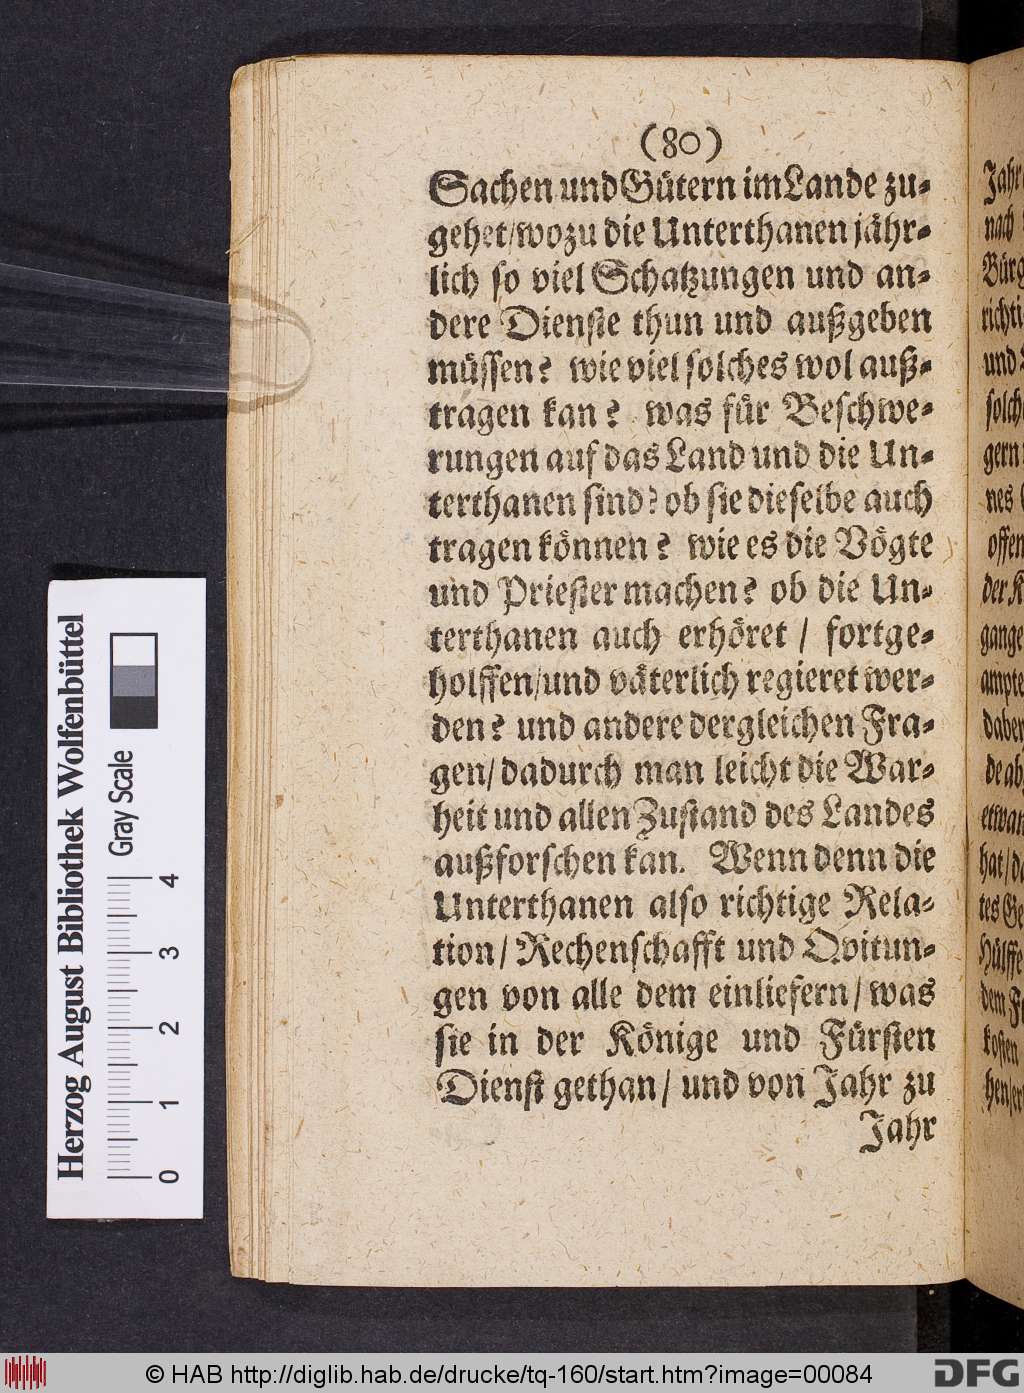 (80)
Sachen und Gütern im Lande zu-
gehet/wozu die Unterthanen jähr-
lich so viel Schatzungen und an-
dere Dienste thun und außgeben
müssen? wie viel solches wol auß-
tragen kan? was für Beschwe-
rungen auf das Land und die Un-
terthanen sind? ob sie dieselbe auch
tragen können? wie es die Vögte
und Priester machen? ob die Un-
terthanen auch erhöret / fortge-
holffen/und väterlich regieret wer-
den? und andere dergleichen Fra-
gen/dadurch man leicht die War-
heit und allen Zustand des Landes
außforschen kan. Wenn denn die
Unterthanen also richtige Rela-
tion/Rechenschafft und Qvitun-
gen von alle dem einliefern/was
sie in der Könige und Fürsten
Dienst gethan/ und von Jahr zu
Jahr
Jahr
nach
Bürg
richti
und
solch
gern
nes
offen
der K
gange
ampte
daber
de ab
etwan
hat/da
tes Ge
Hülffe
dem F
kosten
hen/er
Herzog August Bibliothek Wolfenbüttel
Gray Scale
0 1 2 3 4
© HAB http://diglib.hab.de/drucke/tq-160/start.htm?image=00084
DFG